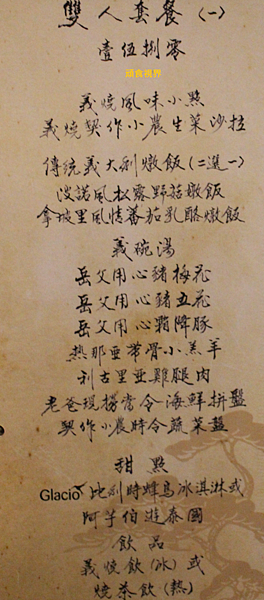 雙人套餐(一)
壹伍捌零
頑食視界
義燒風味小點
義燒契作小農生菜沙拉
傳統義大利燉飯(二選一)
波諾風松露野菇燉飯
拿坡里風情蕃茄乳酪燉飯
義碗湯
岳父用心豬梅花
岳父用心豬五花
岳父用心霜降豚
熱那亞帶骨小羔羊
利古里亞雞腿肉
老爸現撈當令海鮮拼盤
契作小農時令蔬菜盤
甜點
Glacio 比利時蜂鳥冰淇淋或
阿芋伯遊泰國
飲品
義燒飲(冰)或
燒茶飲(熱)